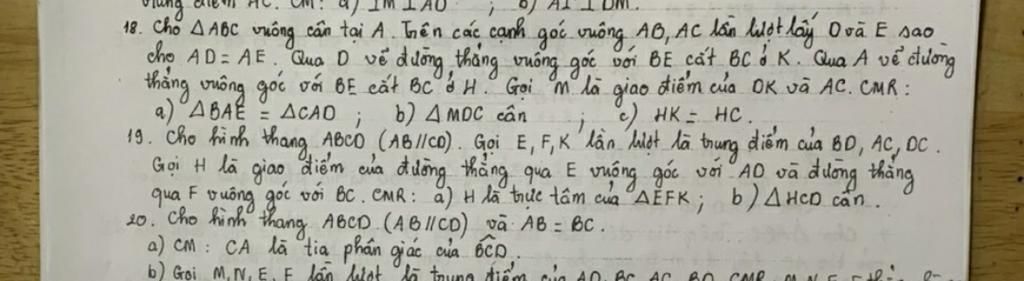 trung điểm AC. CM: a) IM ⊥ AD ; b) AI ⊥ DM.
18. Cho △ABC vuông cân tại A. Trên các cạnh góc vuông AB, AC lần lượt lấy D và E sao
cho AD = AE. Qua D vẽ đường thẳng vuông góc với BE cắt BC ở K. Qua A vẽ đường
thẳng vuông góc với BE cắt BC ở H. Gọi M là giao điểm của DK và AC. CMR:
a) △BAE = △CAD ; b) △MDC cân ; c) HK = HC.
19. Cho hình thang ABCD (AB//CD). Gọi E, F, K lần lượt là trung điểm của BD, AC, DC.
Gọi H là giao điểm của đường thẳng qua E vuông góc với AD và đường thẳng
qua F vuông góc với BC. CMR: a) H là trực tâm của △EFK ; b) △HCD cân.
20. Cho hình thang ABCD (AB//CD) và AB = BC.
a) CM: CA là tia phân giác của B̂CD.
b) Gọi M, N, E, F lần lượt là trung điểm của AD, BC, AC, BD. CMR M, N, E, F